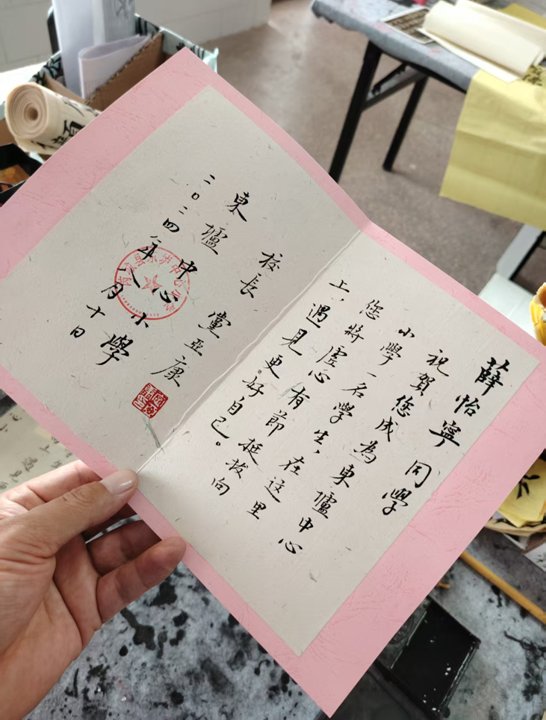 薛怡寧 同學
祝賀您成為東壚中心
小學一名學生,在這里
您將虛心有節挺拔向
上,遇見更好自己。
校長 黨亞康
東壚中心小學
二〇二四年八月十日